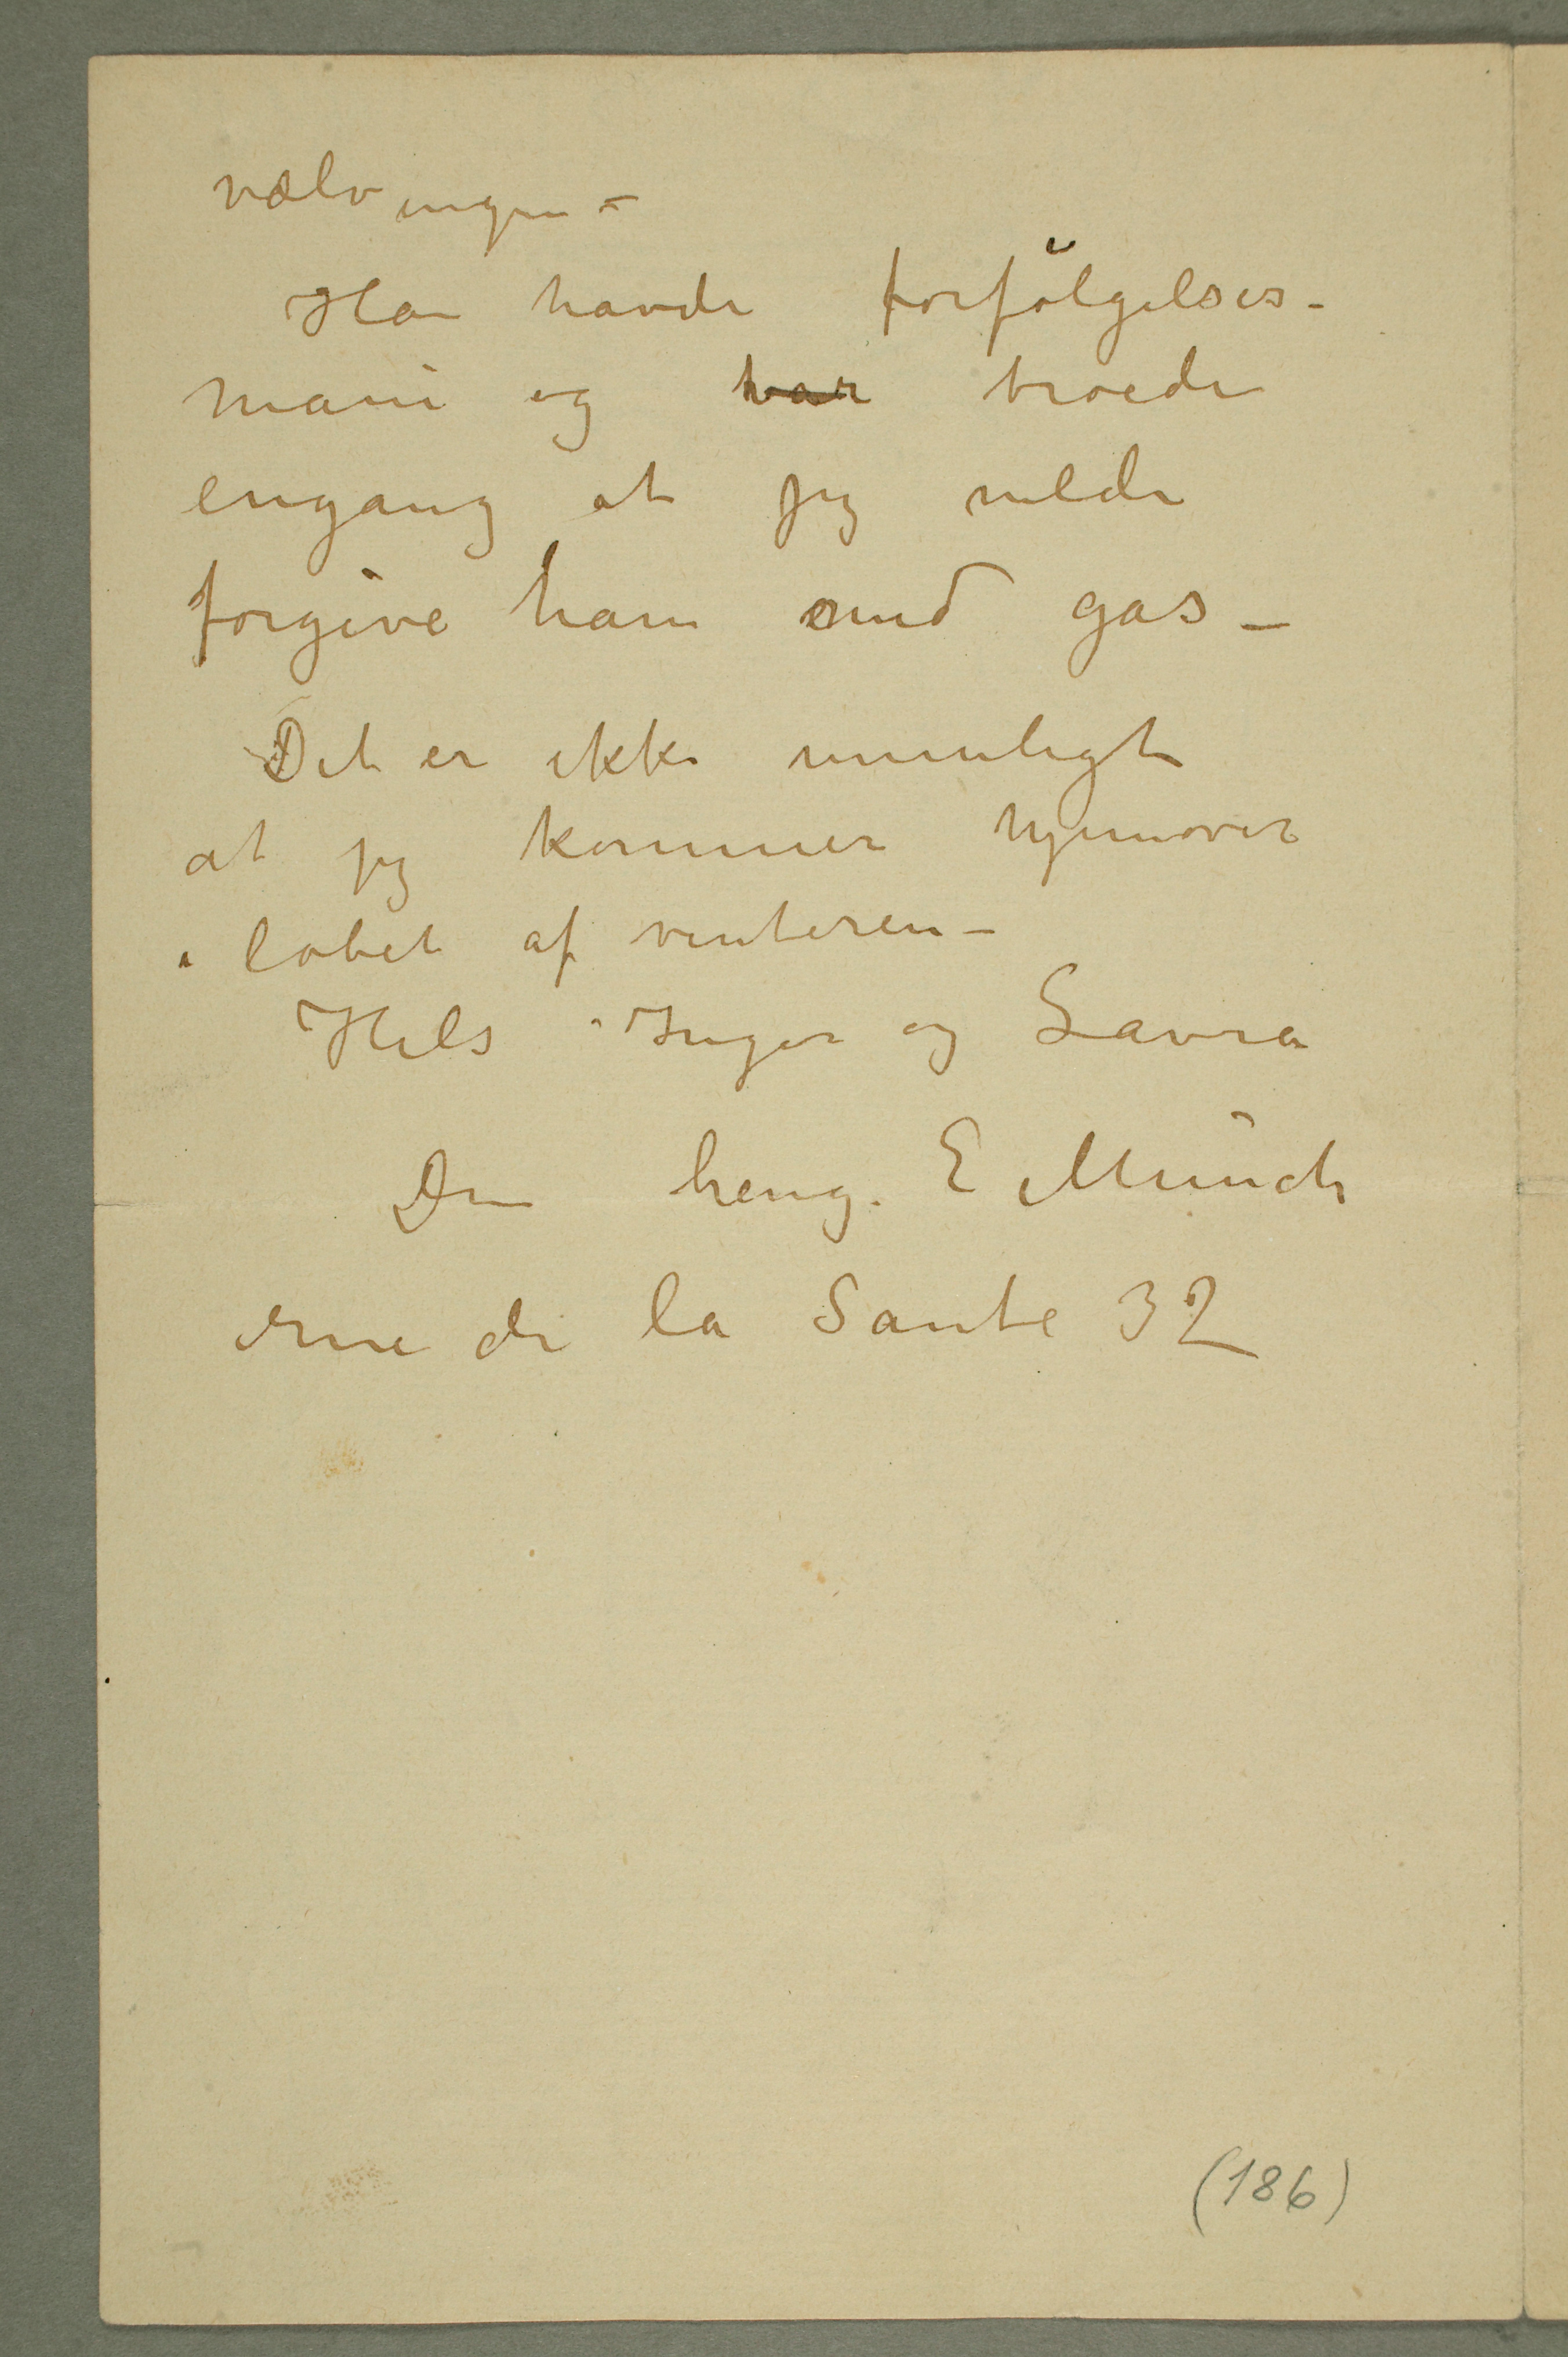 vælvingen –
Han havde forfölgelses-
mani og var troede
engang at jeg vilde
forgive ham med gas –
Det er ikke umuligt
at jeg kommer hjemover
i løbet af vinteren –
Hils Inger og Laura
Din heng. E Munch
rue de la Sante 32
(186)